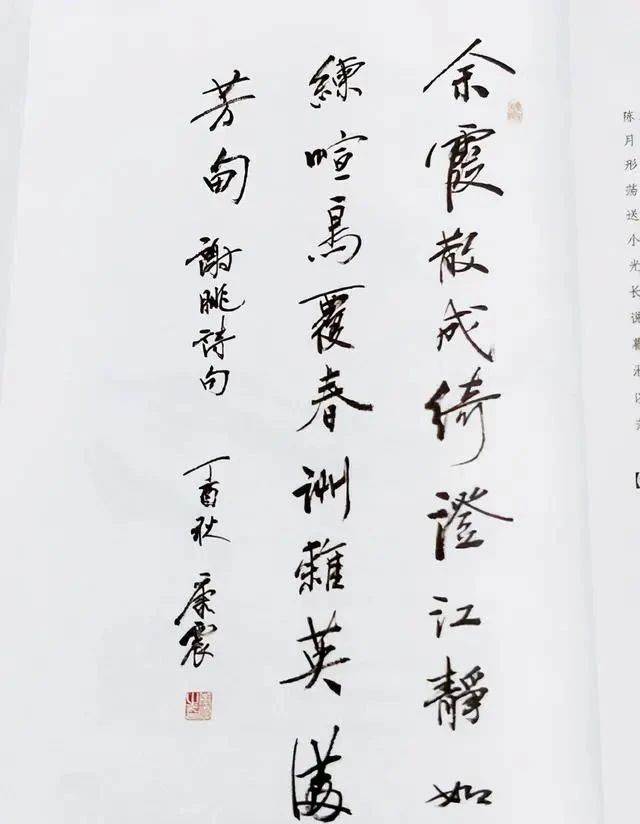 余霞散成绮澄江靜如
練喧鳥覆春洲雜英滿
芳甸 謝朓詩句 丁酉秋 康震
陈
月
形
荡
送
小
光
长
说